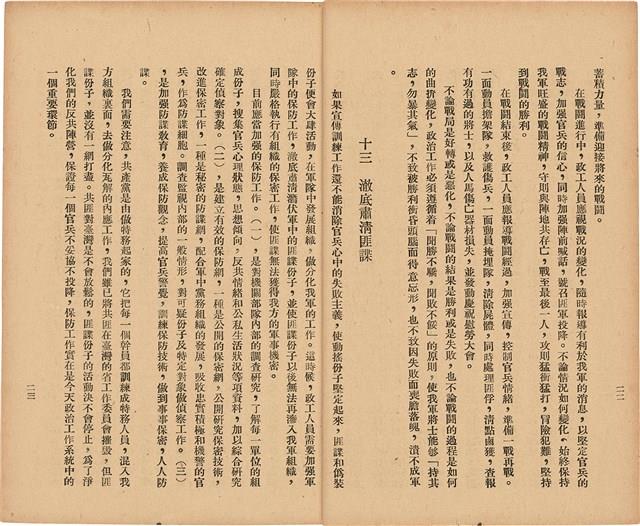 蓄積力量，準備迎接將來的戰鬪。
在戰鬪進行中，政工人員應視戰況的變化，隨時報導有利於我軍的消息，以堅定官兵的
戰志，加强官兵的信心，同時加强陣前喊話，號召匪軍投降。不論情況如何變化，始終保持
我軍旺盛的戰鬪精神，守則與陣地共存亡，戰至最後一人，攻則猛衝猛打，冒險犯難，堅持
到戰鬪的勝利。
在戰鬪結束後，政工人員應報導戰鬪經過，加强宣傳，控制官兵情緒，準備一戰再戰。
一面動員擔架隊，救護傷兵，一面動員掩埋隊，清除屍體，同時處理匪俘，清點鹵獲，查報
有功有過的將士，以及人馬傷亡器材損失，並發動慶祝慰勞大會。
不論戰局是好轉或是惡化，不論戰鬪的結果是勝利或是失敗，也不論戰鬪的過程是如何
的曲折變化，政治工作必須遵循着「聞勝不驕，聞敗不餒」的原則，使我軍將士能够「持其
志，勿暴其氣」，不致被勝利衝昏頭腦而得意忘形，也不致因失敗而喪膽落魄，潰不成軍
。
二二
十三　澈底肅淸匪諜
如果宣傳訓練工作還不能消除官兵心中的失敗主義，使動搖份子堅定起來，匪諜和僞裝
份子便會大肆活動，在軍隊中發展組織，做分化我軍的工作。這時候，政工人員需要加强軍
隊中的保防工作，澈底肅淸潛伏軍中的匪諜份子，並使匪諜份子以後無法再滲入我軍組織，
同時嚴格執行有組織的保密工作，使匪諜無法獲得我方的軍事機密。
目前應當加强的保防工作。（一），是對機關部隊內部的調查研究，了解每一單位的組
成份子，搜集官兵心理狀態，思想傾向，反共情緒和公私生活狀況等項資料，加以綜合研究
確定偵察對象。（二），是建立有效的保防網，一種是公開的保密網，公開研究保密技術，
改進保密工作，一種是秘密的防諜網，配合軍中黨務組織的發展，吸收忠實積極和機警的官
兵，作爲防諜細胞。調查監視內部的一般情形，對可疑份子及特定對象做偵察工作。（三）
，是加强防諜敎育，養成保防觀念，提高官兵警覺，訓練保防技術，做到事事保密，人人防
諜。
我們需要注意，共產黨是由做特務起家的，它把每一個幹員都訓練成特務人員，混入我
方組織裏面，去做分化瓦解的內應工作，我們雖已將共匪在臺灣的省工作委員會摧毁，但匪
諜份子，並沒有一網打盡。共匪對臺灣是不會放鬆的，匪諜份子的活動決不會停止，爲了淨
化我們的反共陣營，保證每一個官兵不妥協不投降，保防工作實在是今天政治工作系統中的
一個重要環節。
二三